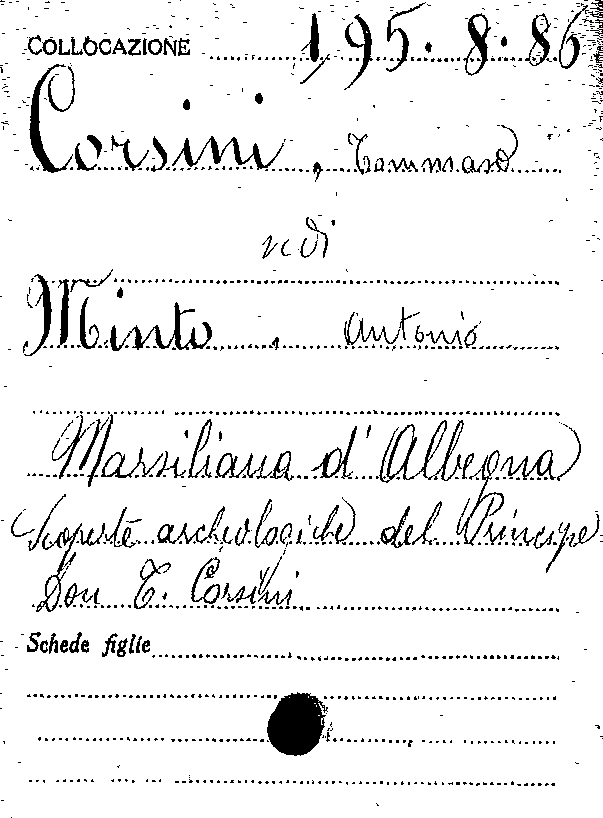 COLLOCAZIONE 195.8.86
Corsini, Tommaso
vedi
Minto, Antonio
Marsiliana d'Albegna
Scoperte archeologiche del Principe
Don T. Corsini
Schede figlie